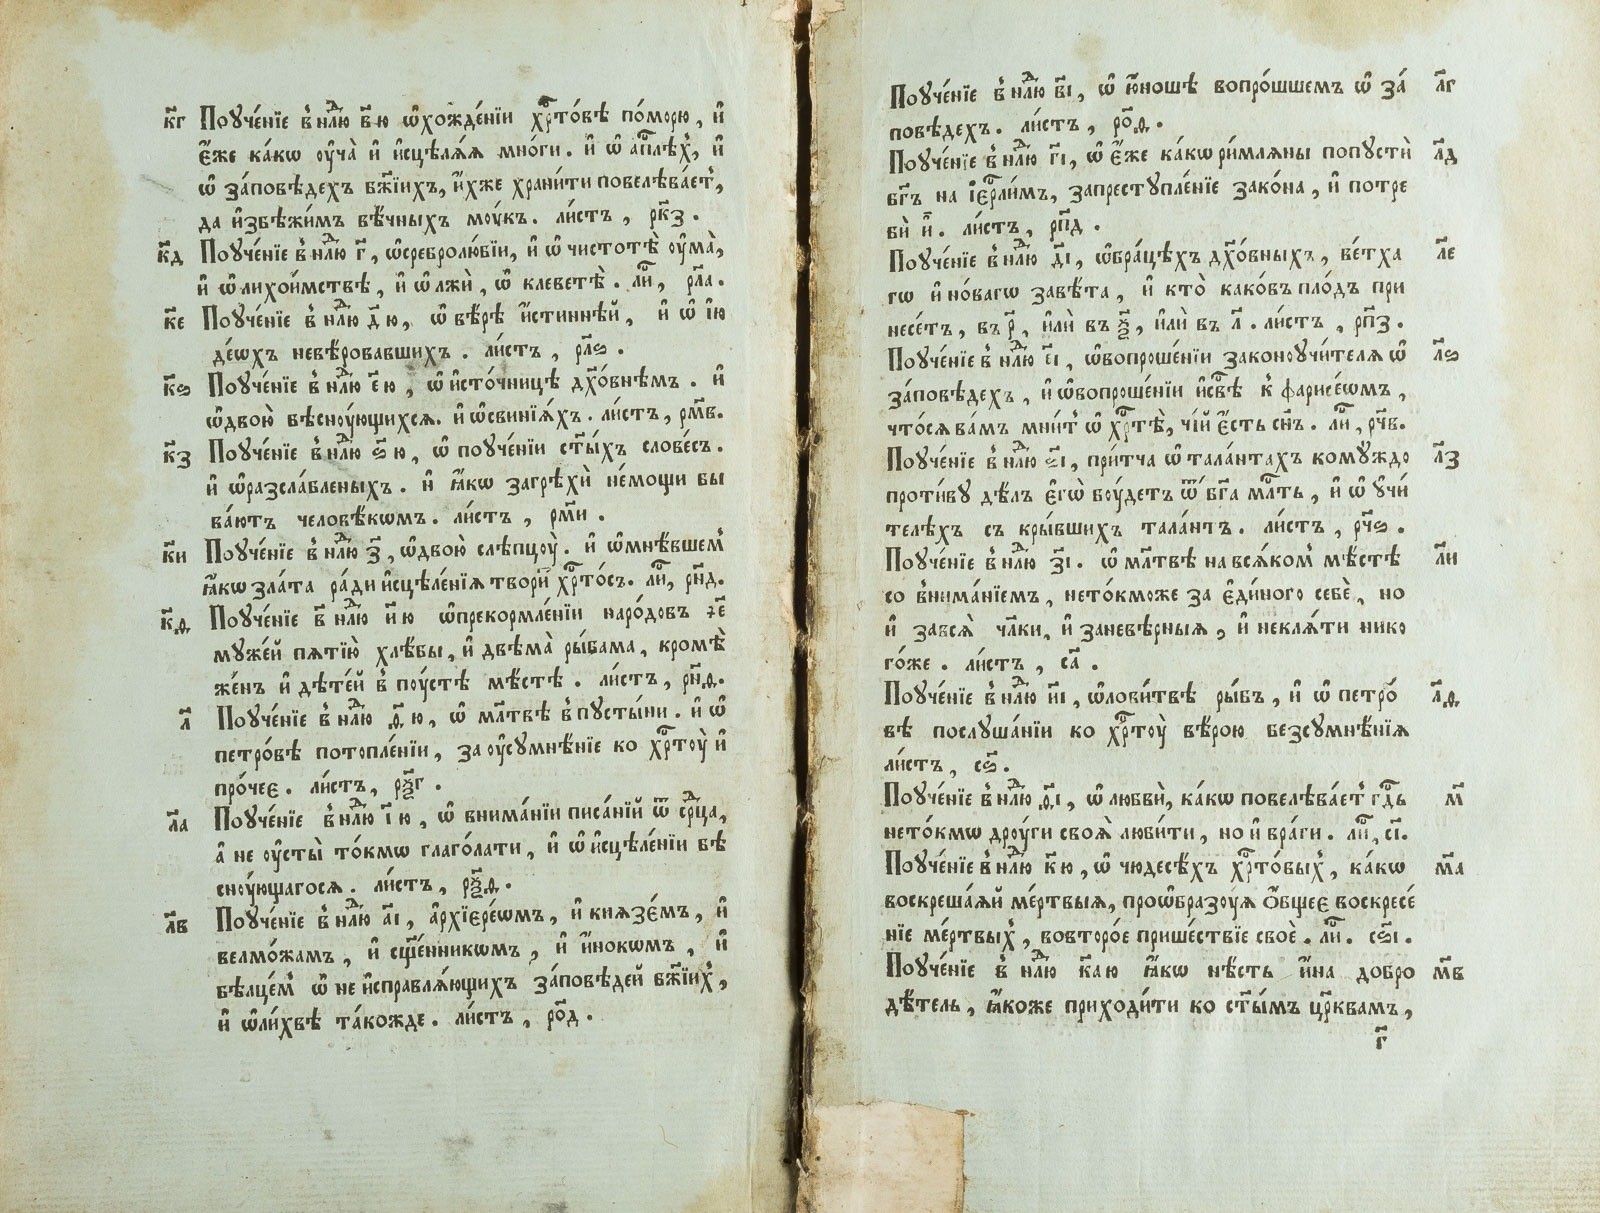 к҃г Поуче́нїе в҆ нⷣлю в҃ ю ѡ҆хожде́нїи хрⷭ҇то́вѣ по́морю, и҆
є҆́же ка́кѡ оу҆ча̀ и҆ и҆сцѣлѧ́ѧ мно́ги. и҆ ѡ҆ а҆пⷭ҇лѣх, и҆
ѡ҆ за́повѣдехъ бж҃їихъ, и҆́хже храни́ти повелѣва́ет,
да и҆збѣжи́мъ вѣ́чныхъ моу́къ. ли́стъ, рк҃з.
к҃д Поуче́нїе в҆ нⷣлю г҃, ѡ҆сребролю́бїи, и҆ ѡ҆ чистотѣ̀ оу҆ма̀,
и҆ ѡ҆лихои́мствѣ, и҆ ѡ҆ лжѝ, ѡ҆ клеветѣ̀. лиⷭ҇, рл҃а.
к҃е Поуче́нїе в҆ нⷣлю д҃ ю, ѡ҆ вѣ́рѣ и҆́стиннѣй, и҆ ѡ҆ і҆ю
де́ѡхъ невѣ́ровавшихъ. ли́стъ, рл҃ѕ.
к҃ѕ Поуче́нїе в҆ нⷣлю є҃ ю, ѡ҆ и҆сто́чницѣ дх҃о́внѣмъ. и҆
ѡ҆двою̀ бѣсноу́ющихсѧ. и҆ ѡ҆свинїѧ́хъ. ли́стъ, рм҃в.
к҃з Поуче́нїе в҆ нⷣлю ѕ҃ ю, ѡ҆ поуче́нїи ст҃ы́хъ слове́съ.
и҆ ѡ҆разсла́бленыхъ. и҆ ꙗ҆́кѡ загрѣхѝ не́мощи бы
ва́ютъ человѣ́кѡмъ. ли́стъ, рм҃и.
к҃и Поуче́нїе в҆ нⷣлю з҃, ѡ҆двою̀ слѣпцоу̀. и҆ ѡ҆мнѣ́вшем
ꙗ҆́кѡ зла́та ра́ди и҆сцѣле́нїѧ твори́ хрⷭ҇то́съ. лиⷭ҇, рн҃д.
к҃ѳ Поуче́нїе в҆ нⷣлю и҃ ю ѡ҆прекормле́нїи наро́довъ ҂є҃
муже́й пѧтїю̀ хлѣ́бы, и҆ двѣма̀ ры́бама, кромѣ̀
же́нъ и҆ дѣте́й в҆ поу́стѣ мѣ́стѣ. ли́стъ, рн҃ѳ.
л҃ Поуче́нїе в҆ нⷣлю ѳ҃ ю, ѡ҆ мл҃твѣ в҆пусты́ни. и҆ ѡ҆
петро́вѣ потопле́нїи, за оу҆сумнѣ́нїе ко хрⷭ҇тоу̀ и҆
про́чее. ли́стъ, рѯ҃г.
л҃а Поуче́нїе в҆ нⷣлю і҃ ю, ѡ҆ внима́нїи писа́нїй ѿ срⷣца,
а҆ не оу҆сты̀ то́кмѡ глаго́лати, и҆ ѡ҆ и҆сцѣле́нїи бѣ
сноу́ющагосѧ. ли́стъ, рѯ҃ѳ.
л҃в Поуче́нїе в҆ нⷣлю а҃і, а҆рхїере́ѡмъ, и҆ кнѧзе́мъ, и҆
велмо́жамъ, и҆ сщ҃е́нникѡмъ, и҆ и҆́нокѡмъ, и҆
бѣлце́м ѡ҆ не и҆справлѧ́ющихъ за́повѣдей бж҃їих,
и҆ ѡ҆ли́хвѣ та́кожде. ли́стъ, ро҃д.
Поуче́нїе в҆ нⷣлю в҃і, ѡ҆ ю҆́ношѣ вопро́шшемъ ѡ҆ за́ л҃г
повѣдехъ. ли́стъ, ро҃ѳ.
Поуче́нїе в҆ нⷣлю г҃і, ѡ҆ є҆́же ка́кѡ ри́млѧны попустѝ л҃д
бг҃ъ на і҆ерⷭ҇ли́мъ, запреступле́нїе зако́на, и҆ потре
бѝ и҆̀. ли́стъ, рп҃д.
Поуче́нїе в҆ нⷣлю д҃і, ѡ҆бра́цѣхъ дх҃о́вныхъ, ве́тха л҃е
гѡ и҆ но́вагѡ завѣ́та, и҆ кто̀ како́въ пло́дъ при
несе́тъ, въ р҃, и҆лѝ въ ѯ҃, и҆лѝ въ л҃. ли́стъ, рп҃з.
Поуче́нїе в҆ нⷣлю є҃і, ѡ҆вопроше́нїи законоучи́телѧ ѡ҆ л҃ѕ
за́повѣдехъ, и҆ ѡ҆вопроше́нїи и҆сⷭ҇вѣ к҆ фарисе́ѡмъ,
что́сѧ ва́мъ мни́т ѡ҆ хрⷭ҇тѣ̀, чі́й є҆́сть сн҃ъ. лиⷭ҇, рч҃в.
Поуче́нїе в҆ нⷣлю ѕ҃і, при́тча ѡ҆ тала́нтахъ комуждо л҃з
проти́ву дѣ́лъ є҆гѡ̀ боу́детъ ѿ бг҃а мл҃ть, и҆ ѡ҆ ѹ҆чи́
телѣхъ съ кры́вшихъ тала́нтъ. ли́стъ, рч҃ѕ.
Поуче́нїе в҆ нⷣлю з҃і. ѡ҆ мл҃твѣ на всѧ́ком мѣ́стѣ л҃и
со в҆нима́нїемъ, нето́кможе за є҆ди́ного себѐ, но
и҆ завсѧ̀ чл҃ки, и҆ заневѣ́рныѧ, и҆ неклѧ́ти нико
го́же. ли́стъ, с҃а.
Поуче́нїе в҆ нⷣлю и҃і, ѡ҆лови́твѣ ры́бъ, и҆ ѡ҆ петро́ л҃ѳ
вѣ послуша́нїи ко хрⷭ҇тоу̀ вѣ́рою безсумнѣ́нїѧ
ли́стъ, с҃ѕ.
Поуче́нїе в҆ нⷣлю ѳ҃і, ѡ҆ любвѝ, ка́кѡ повелѣва́ет гдⷭ҇ь м҃
нето́кмѡ дроу́ги своѧ̀ люби́ти, но и҆ враги̇. лиⷭ҇, с҃і.
Поуче́нїе в҆ нⷣлю к҃ ю, ѡ҆ чюдесѣ́хъ хрⷭ҇то́вых, ка́кѡ м҃а
воскреша́ѧй ме́ртвыѧ, проѡ҆бразоу́ѧ Ѻ҆́бщее воскресе́
нїе ме́ртвых, вовторо́е прише́ствїе своѐ. лиⷭ҇. сѕ҃і.
Поуче́нїе в҆ нⷣлю к҃а ю ꙗ҆́кѡ нѣ́сть и҆́на добро м҃в
дѣ́тель, ꙗ҆́коже приходи́ти ко ст҃ы́мъ цр҃квамъ,
г҃